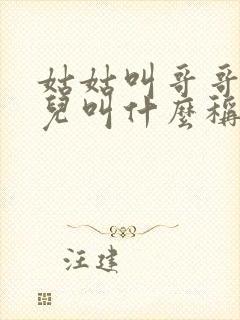 姑姑叫哥哥
兒叫什麼稱
汪建